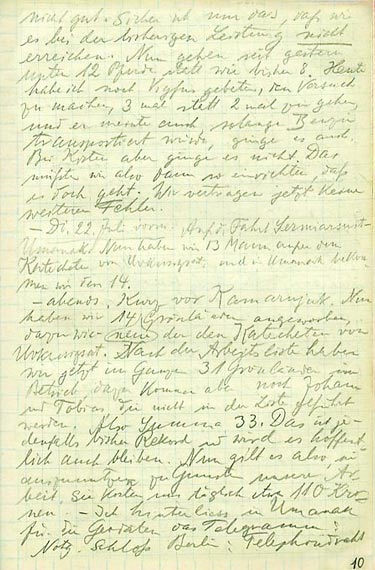 nicht gut. Sicher ist nur das, daß wir
es bei der bisherigen Leistung nicht
erreichen. Nun gehen seit gestern
unten 12 Pferde statt wie bisher 8. Heute
habe ich noch gebeten, den Versuch
zu machen, 3 mal statt 2 mal zu gehen,
und er meinte auch, solange
transportiert würde, ginge es auch.
Bei Kisten aber ginge es nicht. Das
müßten wir also dann so einrichten, daß
es doch geht. Wir vertragen jetzt keine
weiteren Fehler.
– Di. 22. Juli vorm. Auf d. Fahrt
Umanak. Nun haben wir 13 Mann außer dem
Katecheten von und in Umanak bekom-
men wir den 14.
– abends. Kurz vor Kamarujuk. Nun
haben wir 14 Grönländer angeworben,
dazu wie der den Katecheten von
Nach der Arbeitsliste haben
wir jetzt im Ganzen 31 Grönländer im
Betrieb, dazu kommen als noch Johann
und Tobias, die nicht in der Liste geführt
werden. Also Summa 33. Das ist je-
denfalls bisher Rekord und wird es hoffent-
lich auch bleiben. Nun gilt es also,
zu Gunsten unserer Ar-
beit. Sie kosten uns täglich etwa 110 Kro-
nen. – Ich hinterliess in Umanak
für die das Telegramm:
Notg. Schloß Berlin: Telephondraht
10